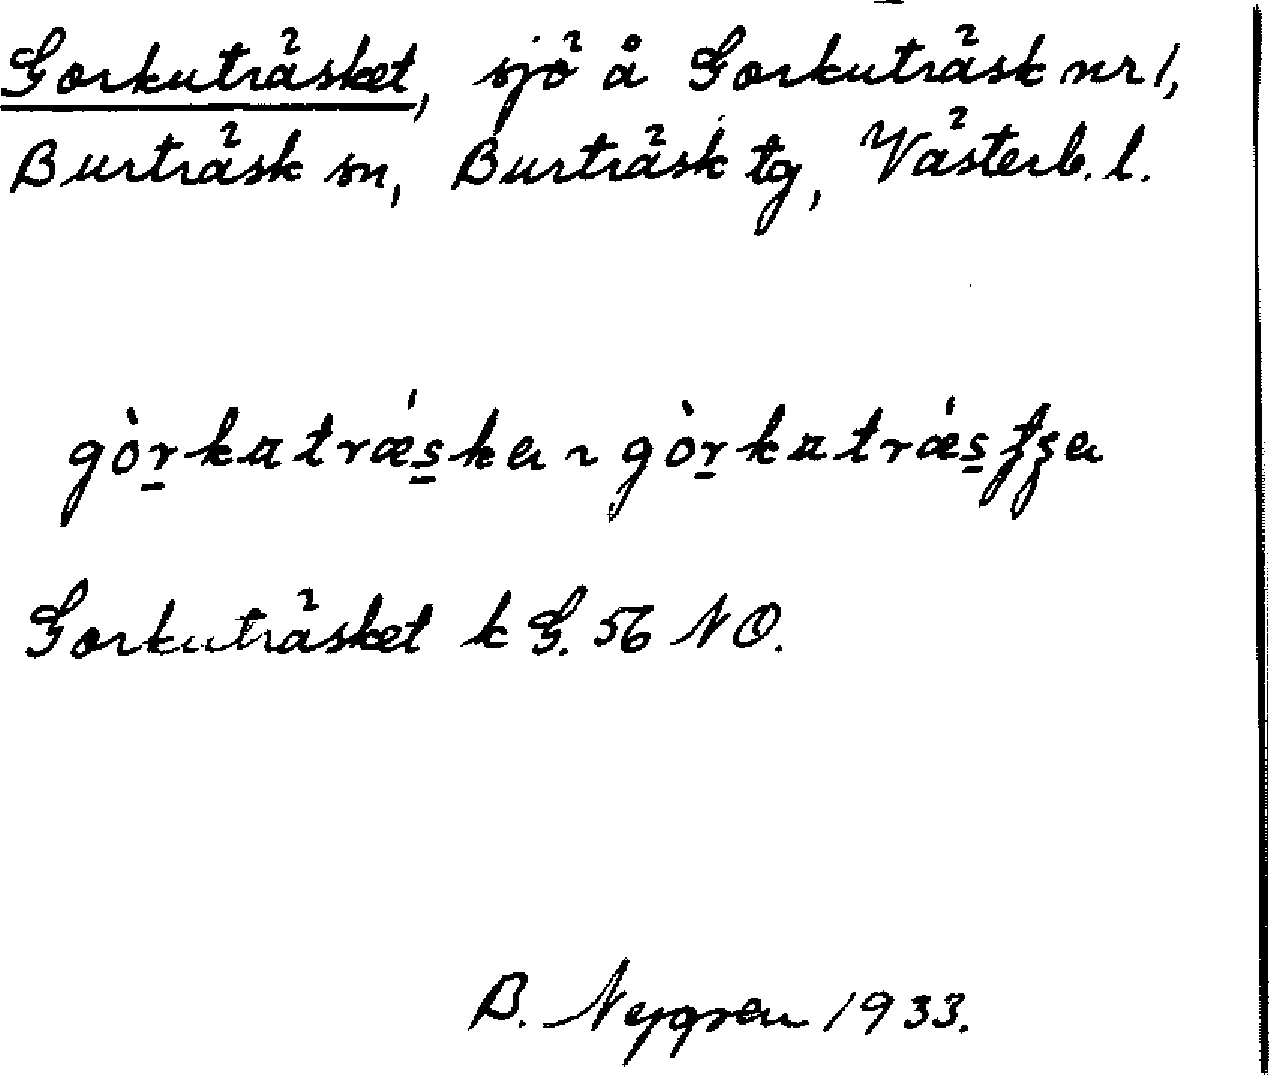 Gorkuträsket, sjö å Gorkuträsk nr 1,
Burträsk sn, Burträsk tg, Västerb. l.
gòr̠katrǽs̠ka ~ gòr̠katrǽs̠ʄʒa
Gorkuträsket k G. 56 NO.
B. Nygren 1933.